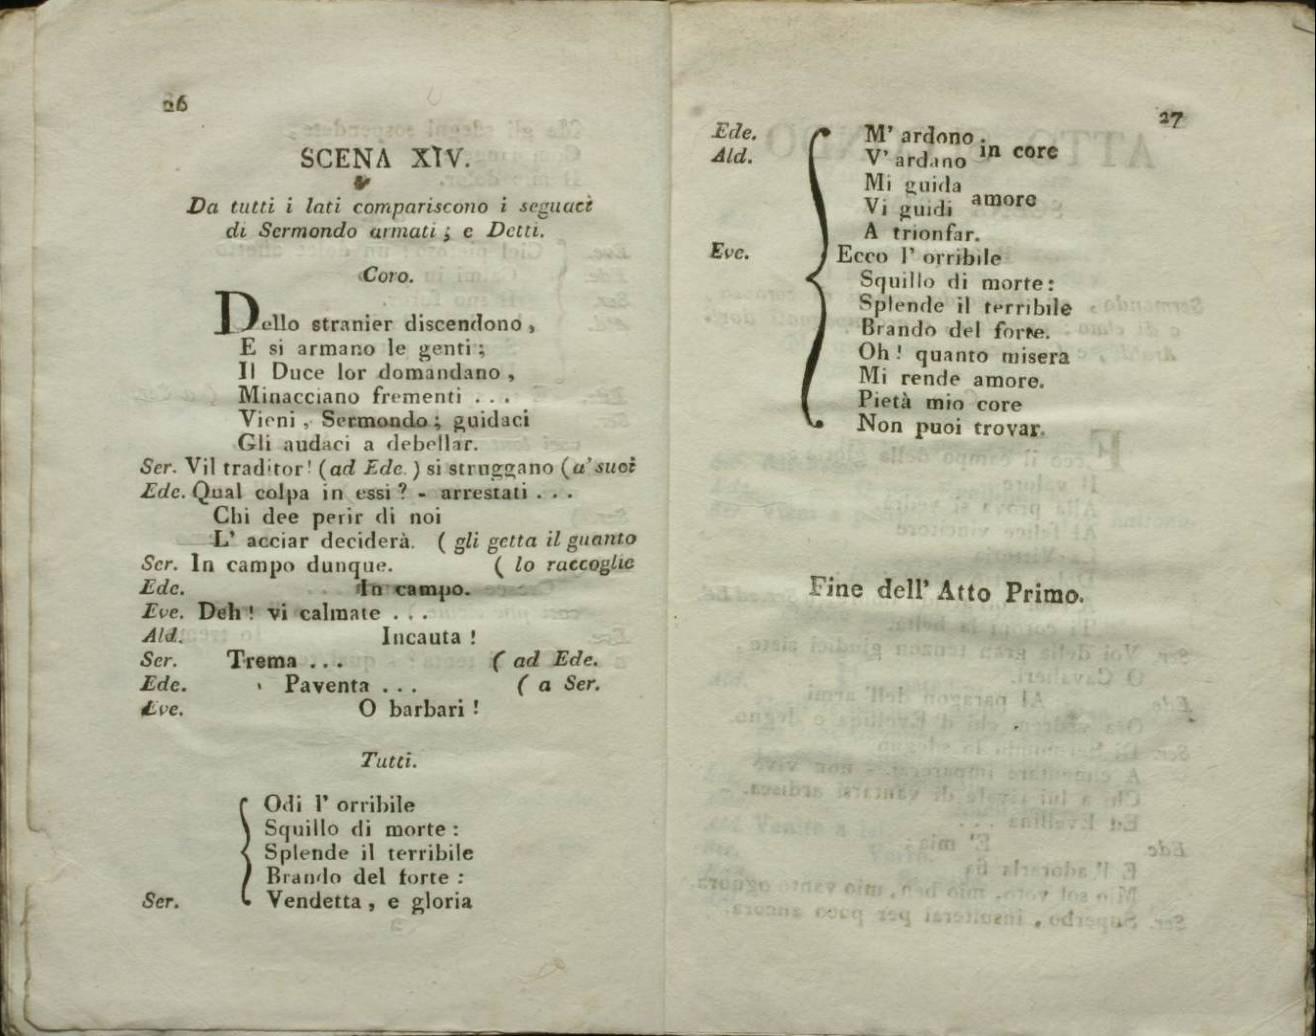 26
SCENA XIV.
Da tutti i lati compariscono i seguaci
di Sermondo armati; e Detti.
Coro.
Dello stranier discendono,
E si armano le genti;
Il Duce lor domandano,
Minacciano frementi ...
Vieni, Sermondo; guidaci
Gli audaci a debellar.
Ser. Vil traditor! (ad Ede.) si struggano (a' suoi
Ede. Qual colpa in essi? - arrestati ...
Chi dee perir di noi
L' acciar deciderà. ( gli getta il guanto
Ser. In campo dunque. ( lo raccoglie
Ede. In campo.
Eve. Deh! vi calmate ...
Ald. Incauta!
Ser. Trema ... ( ad Ede.
Ede. Paventa ... ( a Ser.
Eve. O barbari!
Tutti.
Odi l' orribile
Squillo di morte:
Splende il terribile
Brando del forte:
Ser. Vendetta, e gloria
27
Ede. M' ardono in core
Ald. V' ardano
Mi guida amore
Vi guidi
A trionfar.
Eve. Ecco l' orribile
Squillo di morte:
Splende il terribile
Brando del forte.
Oh! quanto misera
Mi rende amore.
Pietà mio core
Non puoi trovar.
Fine dell' Atto Primo.